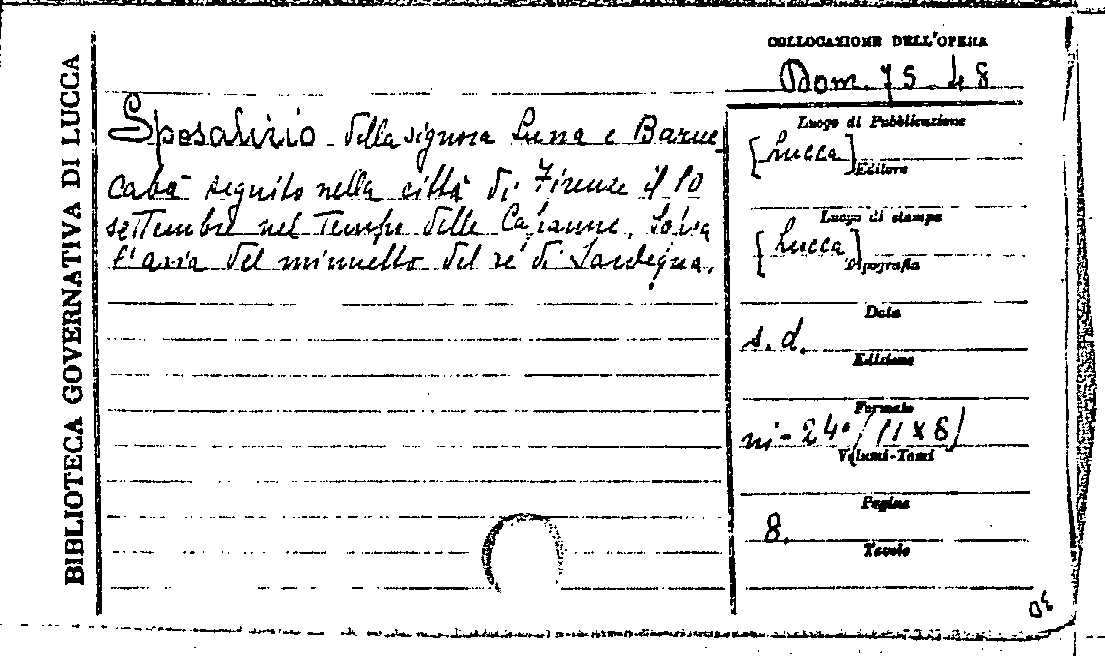 BIBLIOTECA GOVERNATIVA DI LUCCA
COLLOCAZIONE DELL'OPERA
Dom. 75. 48
Sposalizio della signora Luna e Baruc
Cabà seguito nella città di Firenze il 10
settembre nel Tempio delle Capanne. Sotva
l'aria del minuetto del re di Sardegna.
Luogo di Pubblicazione
[Lucca]
Editore
Luogo di stampa
[Lucca]
Tipografia
Data
s. d.
Edizione
Formato
in-24° /11x8/
Volumi-Tomi
Pagine
8.
Tavole